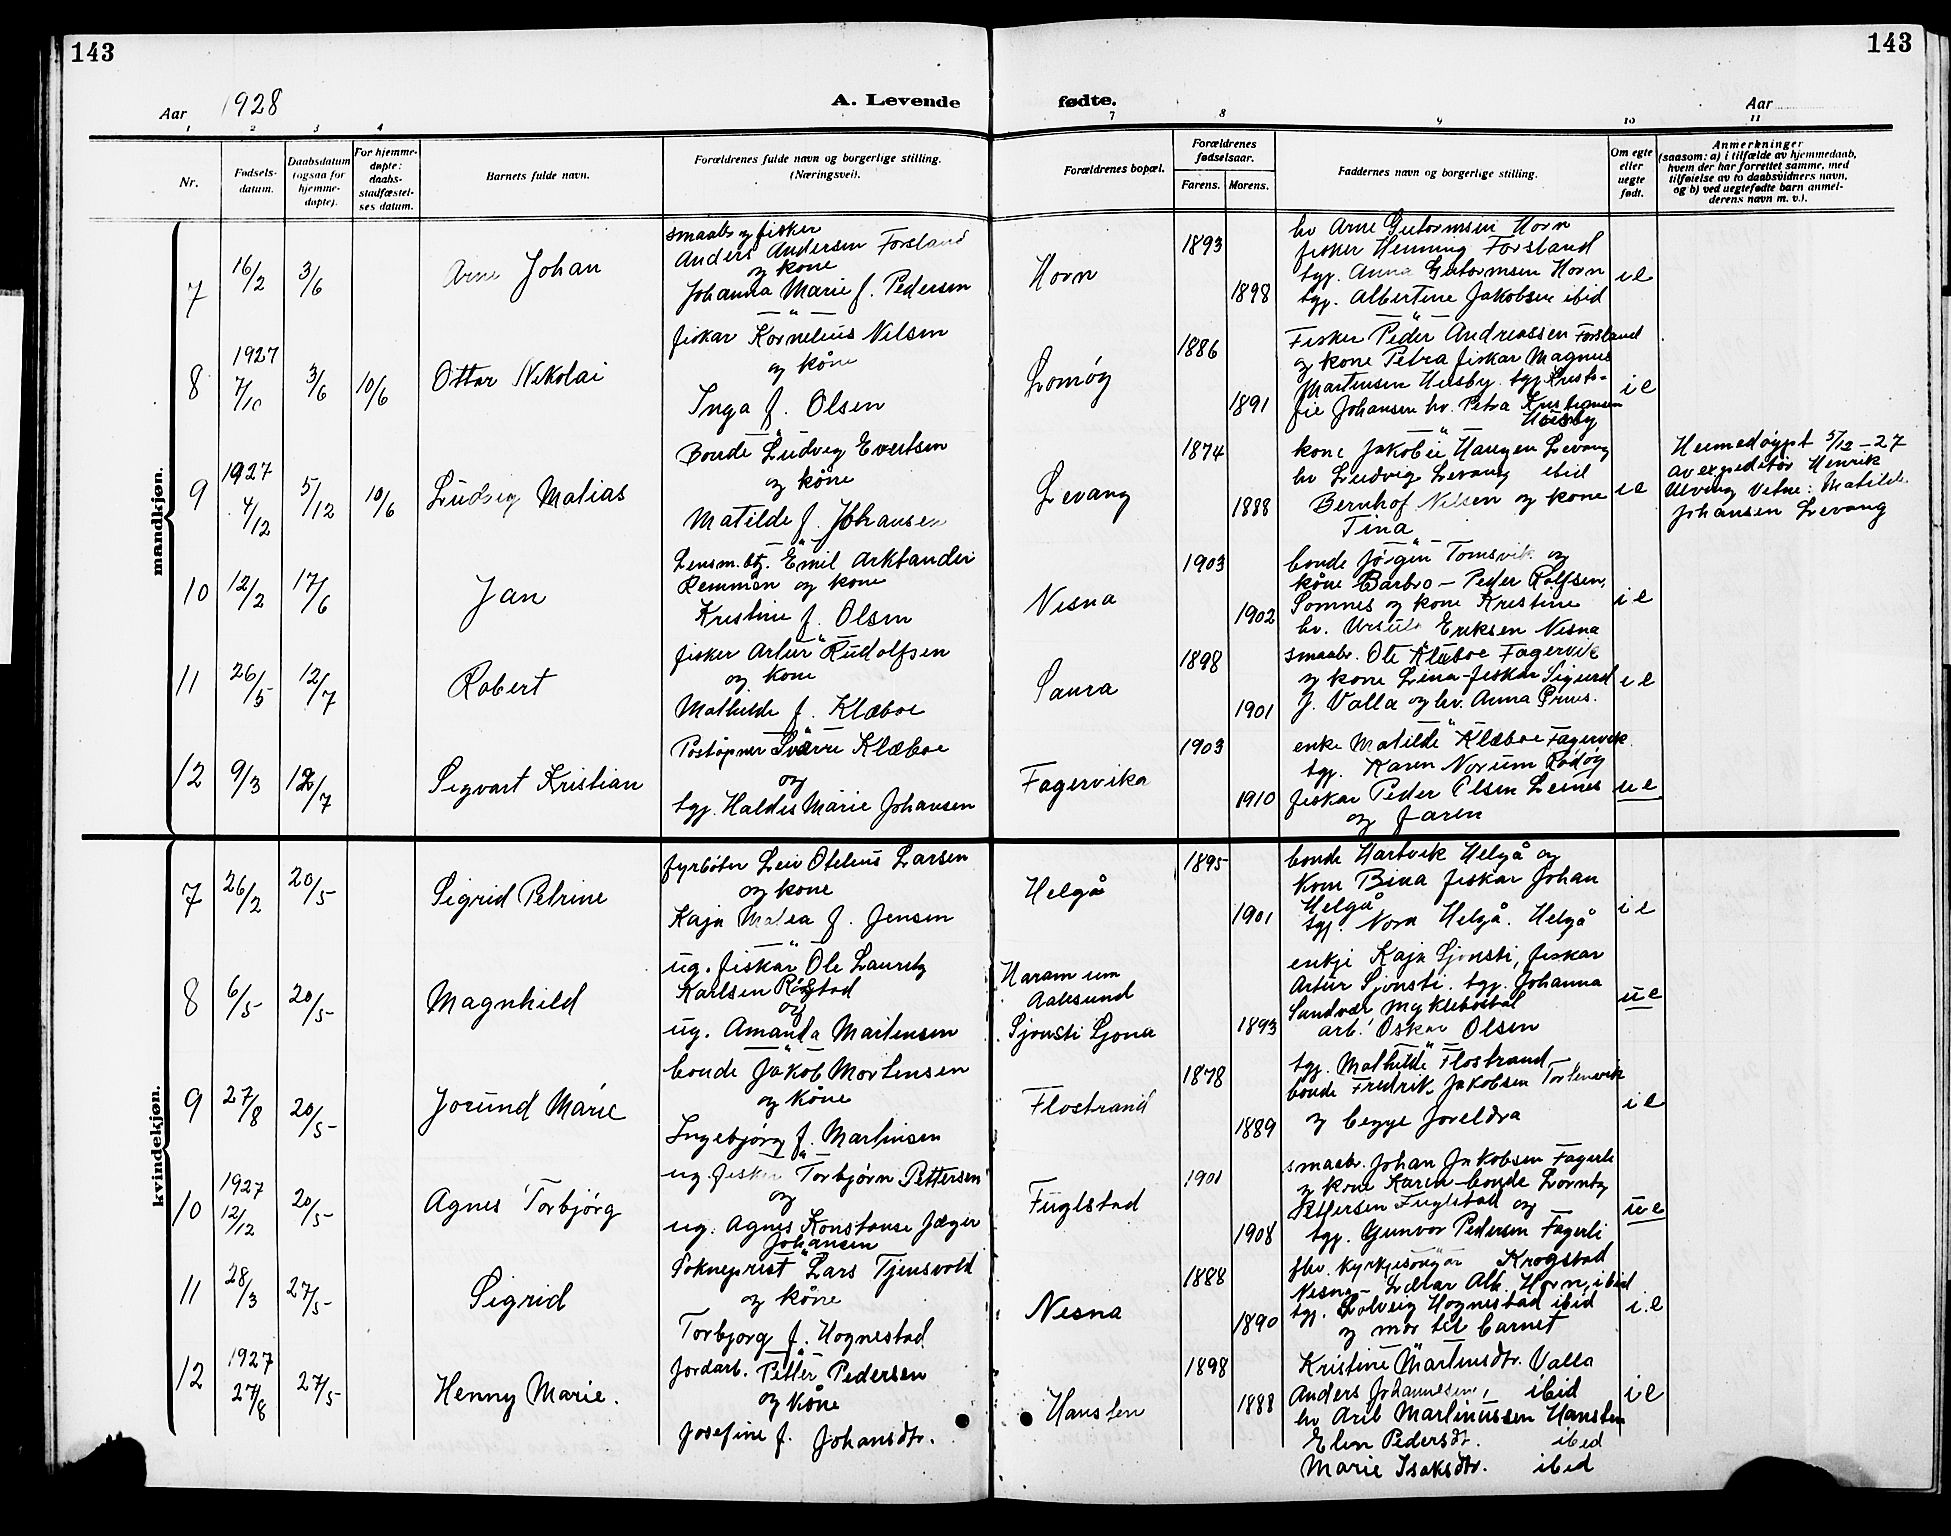 143
143
Aar 1928
A. Levende
fødte.
Aar
1 2 3 4 7 8 9 10 11
Nr.
Fødsels-
datum.
Daabsdatum
(ogsaa for
hjemme-
døpte).
For hjemme-
døpte:
daabs-
stadfæstel-
ses datum.
Barnets fulde navn.
Forældrenes fulde navn og borgerlige stilling.
(Næringsvei).
Forældrenes bopæl.
Forældrenes
fødselsaar.
Farens. Morens.
Faddernes navn og borgerlige stilling.
Om egte
eller
uegte
født.
Anmerkninger
(saasom: a) i tilfælde av hjemmedaab,
hvem der har forrettet samme, med
tilføielse av to daabsvidners navn,
og b) ved uegtefødte barn anmel-
derens navn m. v.).
mandkjøn.
7 16/2 3/6 Arne Johan
smaabr og fisker
Anders Andersen Forsland
og kone
Johanna Marie f. Pedersen
Horn
1893
1898
hv Arne Guttormsen Horn
fisker Henning Forsland
tgj. Anna Guttormsen Horn
tgj. Albertine Jakobsen ibid
i e
8 1927 7/10 3/6 10/6 Ottar Nikolai
fiskar Kornelius Nilsen
og kone
Inga f. Olsen
Lomøy
1886
1891
Fisker Peder Andreassen Forsland
og kone Petra fiskar Magnus
Martinsen Husby. tgj Kristo-
fie Johansen hv. Petra Kristiansen
Husby
i e
9 1927 4/12 5/12 10/6 Ludvig Matias
Bonde Ludvig Evertsen
og kone
Matilde f. Johansen
Levang
1874
1888
kone Jakobie Haugen Levang
hv Ludvig Levang ibid
Bernhof Nilsen og kone
Tina
i e
Heimedøypt 5/12-27
av expeditør Henrik
Ulving Vitne: Matilde
Johansen Levang
10 12/2 17/6 Jan
Lensm.btj. Emil Arktander
Remmen og kone
Kristine f. Olsen
Nesna
1903
1902
bonde Jørgen Tomsvik og
kone Barbro - Peder Rolfsen,
Somnes og kone Kristine
hv. Ursula Eriksen Nesna
i e
11 26/5 12/7 Robert
fisker Artur Rudolfsen
og kone
Mathilde f. Klæboe
Saura
1898
1901
smaabr. Ole Klæboe Fagervik
og kone Lina - fiskar Sigurd
J. Valla og hv. Anna
i e
12 9/3 12/7 Sigvart Kristian
Postopner Sverre Klæboe
og
tgj. Haldis Marie Johansen
Fagervika
1903
1910
enke Matilde Klæboe Fagervik
tgj. Karen Norum Rødøy
fiskar Peder Olsen Leines
og faren
u e
kvindekjøn.
7 26/2 20/5 Sigrid Petrine
fyrbøter Leiv Otelius Larsen
og kone
Kaja Matea f. Jensen
Helgå
1895
1901
bonde Hartvik Helgå og
Kone Bina fiskar Johan
Helgå
tgj. Nora Helgå. Helgå
i e
8 6/5 20/5 Magnhild
ug. fiskar Ole Lauritz
Karlsen Røgstad
og
ug. Amanda Martinsen
Haram um
Aalesund
Sjonsti Sjona
1893
enkje Kaja Sjonsti, fiskar
Artur Sjonsti. tgj. Johanna
Sandvær Myklebostad
arb. Oskar Olsen
u e
9 27/8 20/5 Jorund Marie
bonde Jakob Mortensen
og kone
Ingebjørg f. Martinsen
Flostrand
1878
1889
tgj. Mathilde Flostrand -
bonde Fredrik Jakobsen Torstenvik
og begge foreldra
i e
10 1927 12/12 20/5 Agnes Torbjørg
ug. fisker Torbjørn Pettersen
og
ug. Agnes Konstanse Jæger
Johansen
Fuglstad
1901
1908
smaabr. Johan Jakobsen Fagerli
og kone Karen - bonde Lorntz
Pettersen Fuglstad og
tgj. Gunvor Pedersen Fagerli
u e
11 28/3 27/5 Sigrid
Sokneprest Lars Tjensvold
og kone
Torbjorg f. Hognestad
Nesna
1888
1890
fhv. kyrkjesongar Krogstad
Nesna - Lærar Alb. Horn, ibid
tgj. Solveig Hognestad ibid
og mor til barnet
i e
12 1927 27/8 27/5 Henny Marie.
Jordarb. Petter Pedersen
og kone
Josefine f. Johansdtr.
Hansten
1898
1888
Kristine Martinsdtr. Valla
Anders Johannesen, ibid
hv Arit Martinussen Hansten
Elen Pedersdt. ibid
Marie Isaksdtr. ibid
i e